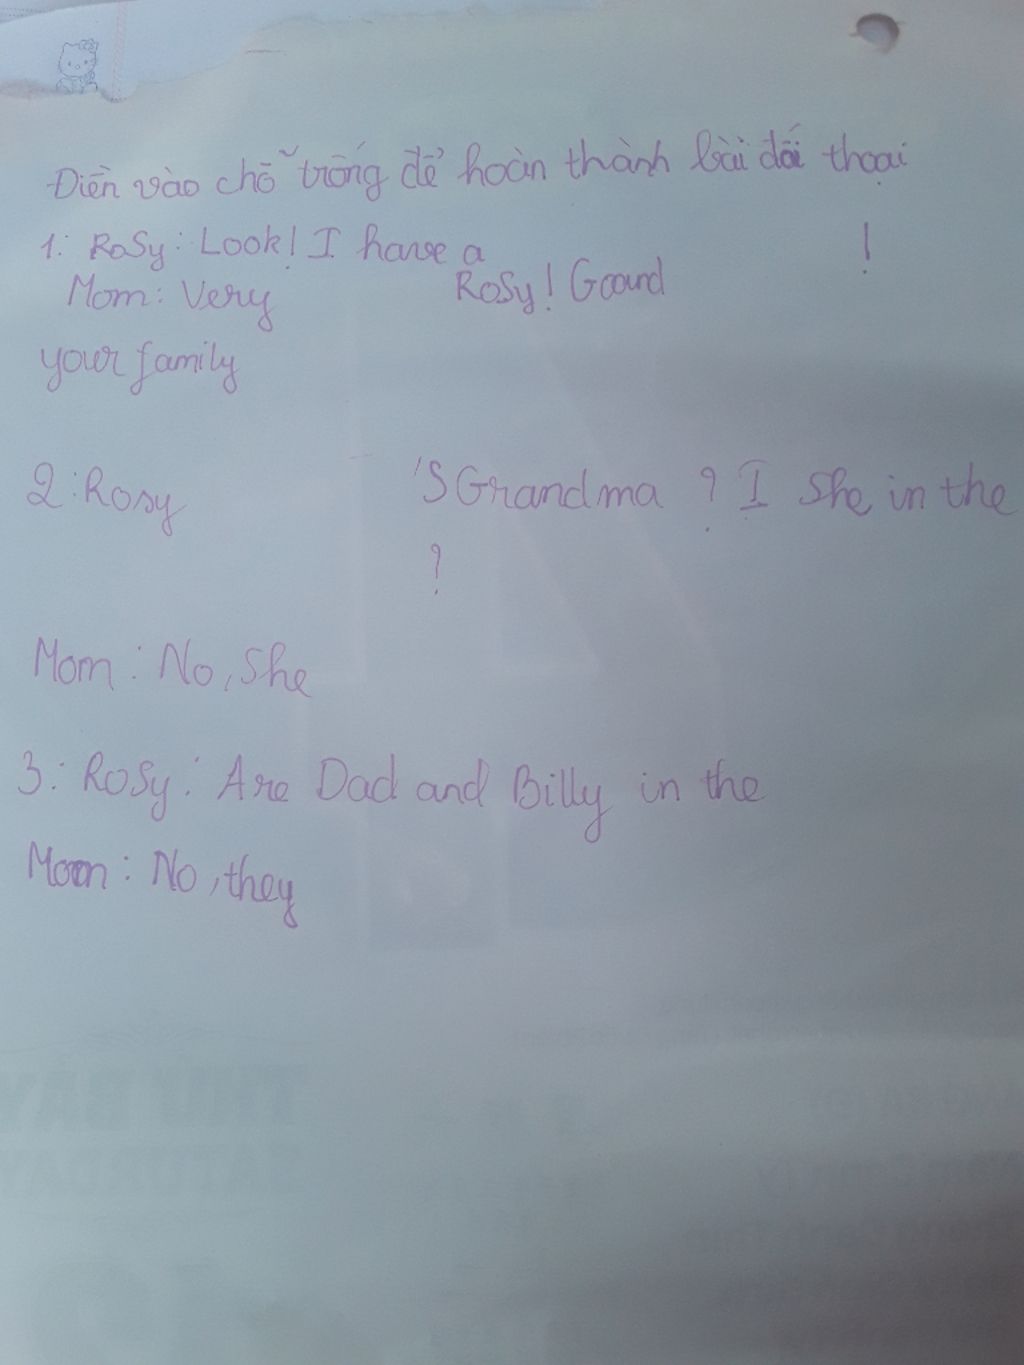 Điền vào chỗ trống để hoàn thành bài đối thoại
1: Rosy: Look! I have a !
Mom: Very Rosy! Goand
your family
2: Rosy 's Grandma ? I she in the
?
Mom: No, she
3: Rosy: Are Dad and Billy in the
Mom: No, they